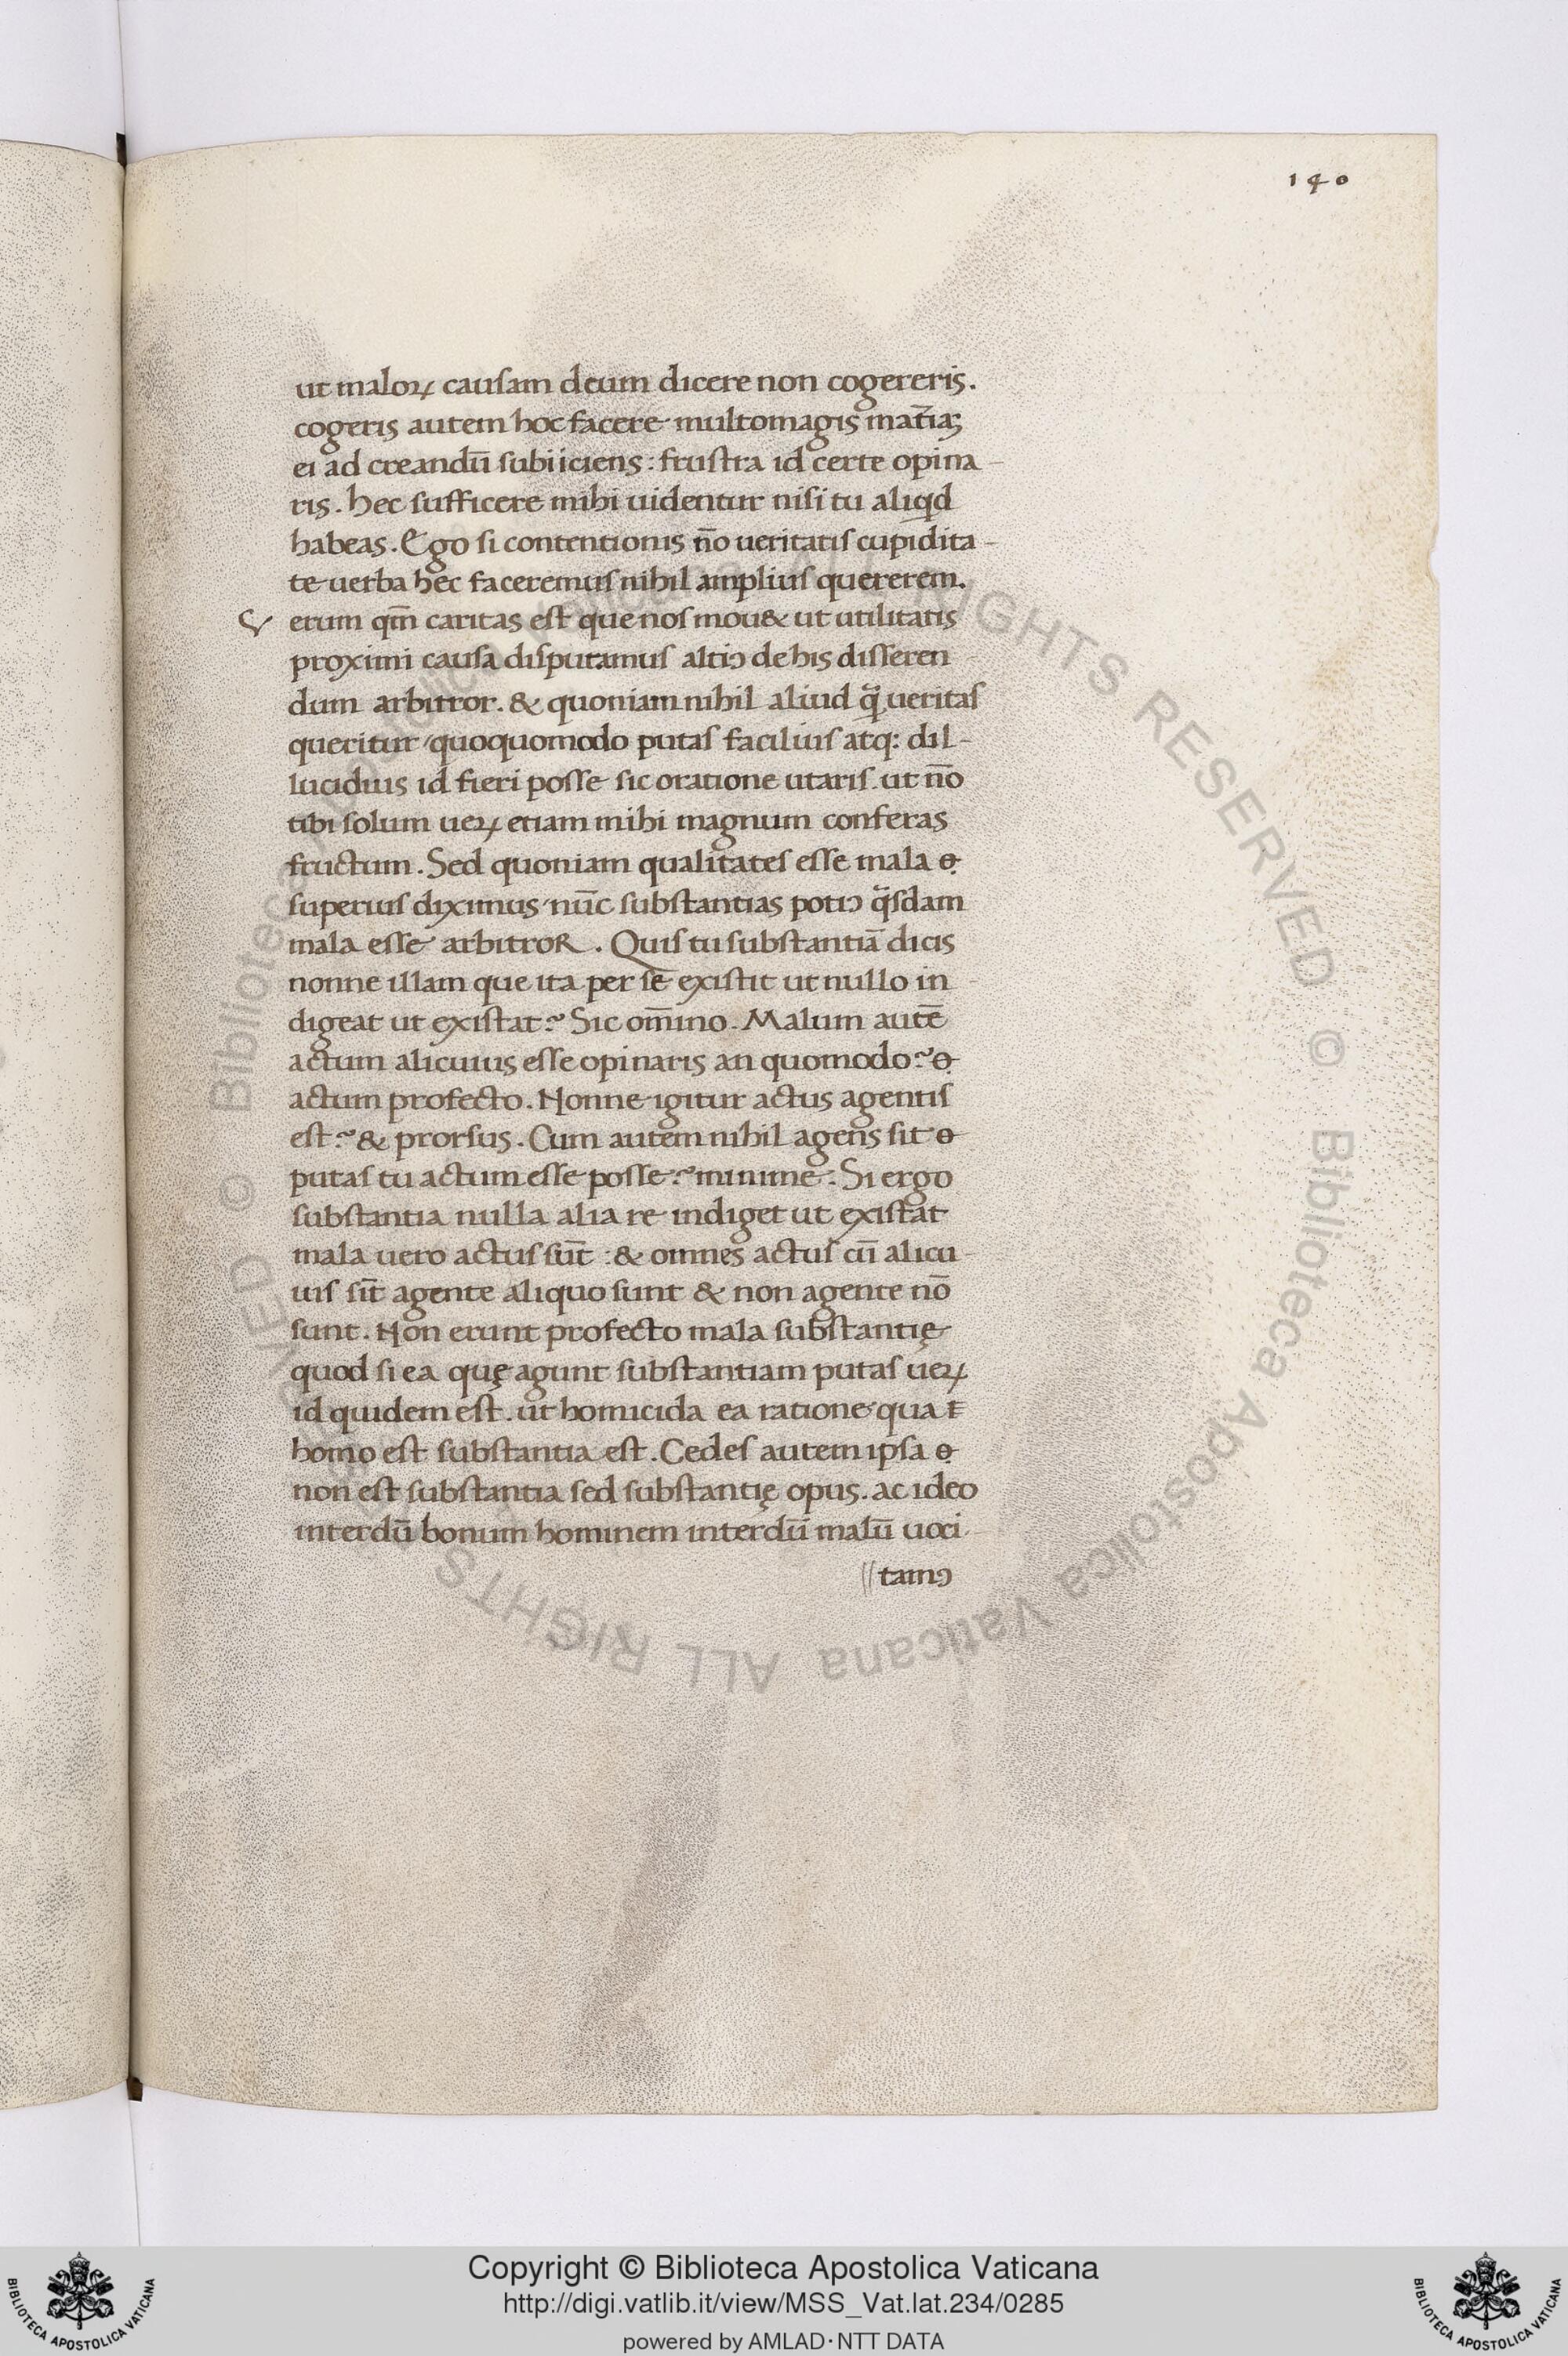 140
ut maloꝝ causam deum dicere non cogereris.
cogeris autem hoc facere multomagis mat̄iaꝫ
ei ad creandū subiiciens: frustra id certe opina-
ris. hec sufficere mihi uidentur nisi tu aliqͥd
habeas. Ego si contentionis nō ueritatis cupidita-
te uerba hęc faceremus nihil amplius quererem.
Verum qm̄ caritas est que nos mou& ut utilitatis
proximi causa disputamus altiꝯ de his disseren
dum arbitror. & quoniam nihil aliud qͣꝫ ueritas
queritur quoquomodo putas facilius atq: dil-
lucidius id fieri posse sic oratione utaris. ut nō
tibi solum ueꝝ etiam mihi magnum conferas
fructum. Sed quoniam qualitates esse mala o.
superius diximus nūc substantias potiꝯ qͣsdam
mala esse arbitror. Quis tu substantiā dicis
nonne illam que ita per se existit ut nullo in
digeat ut existat? Sic om̄ino. Malum autē
actum alicuius esse opinaris an quomodo? o.
actum profecto. Nonne igitur actus agentis
est? & prorsus. Cum autem nihil agens sit o
putas tu actum esse posse? minime. Si ergo
substantia nulla alia re indiget ut existat
mala uero actus sūt: & omnes actus cū alicu
ius sīt agente aliquo sunt & non agente nō
sunt. Non erunt profecto mala substantię
quod si ea quę agunt substantiam putas ueꝝ
id quidem est. ut homicida ea ratione qua
homo est substantia est. Cedes autem ipsa o.
non est substantia sed substantię opus. ac ideo
interdū bonum hominem interdū malū uoci
tamꝯ
Copyright © Biblioteca Apostolica Vaticana
http://digi.vatlib.it/view/MSS_Vat.lat.234/0285
powered by AMLAD·NTT DATA